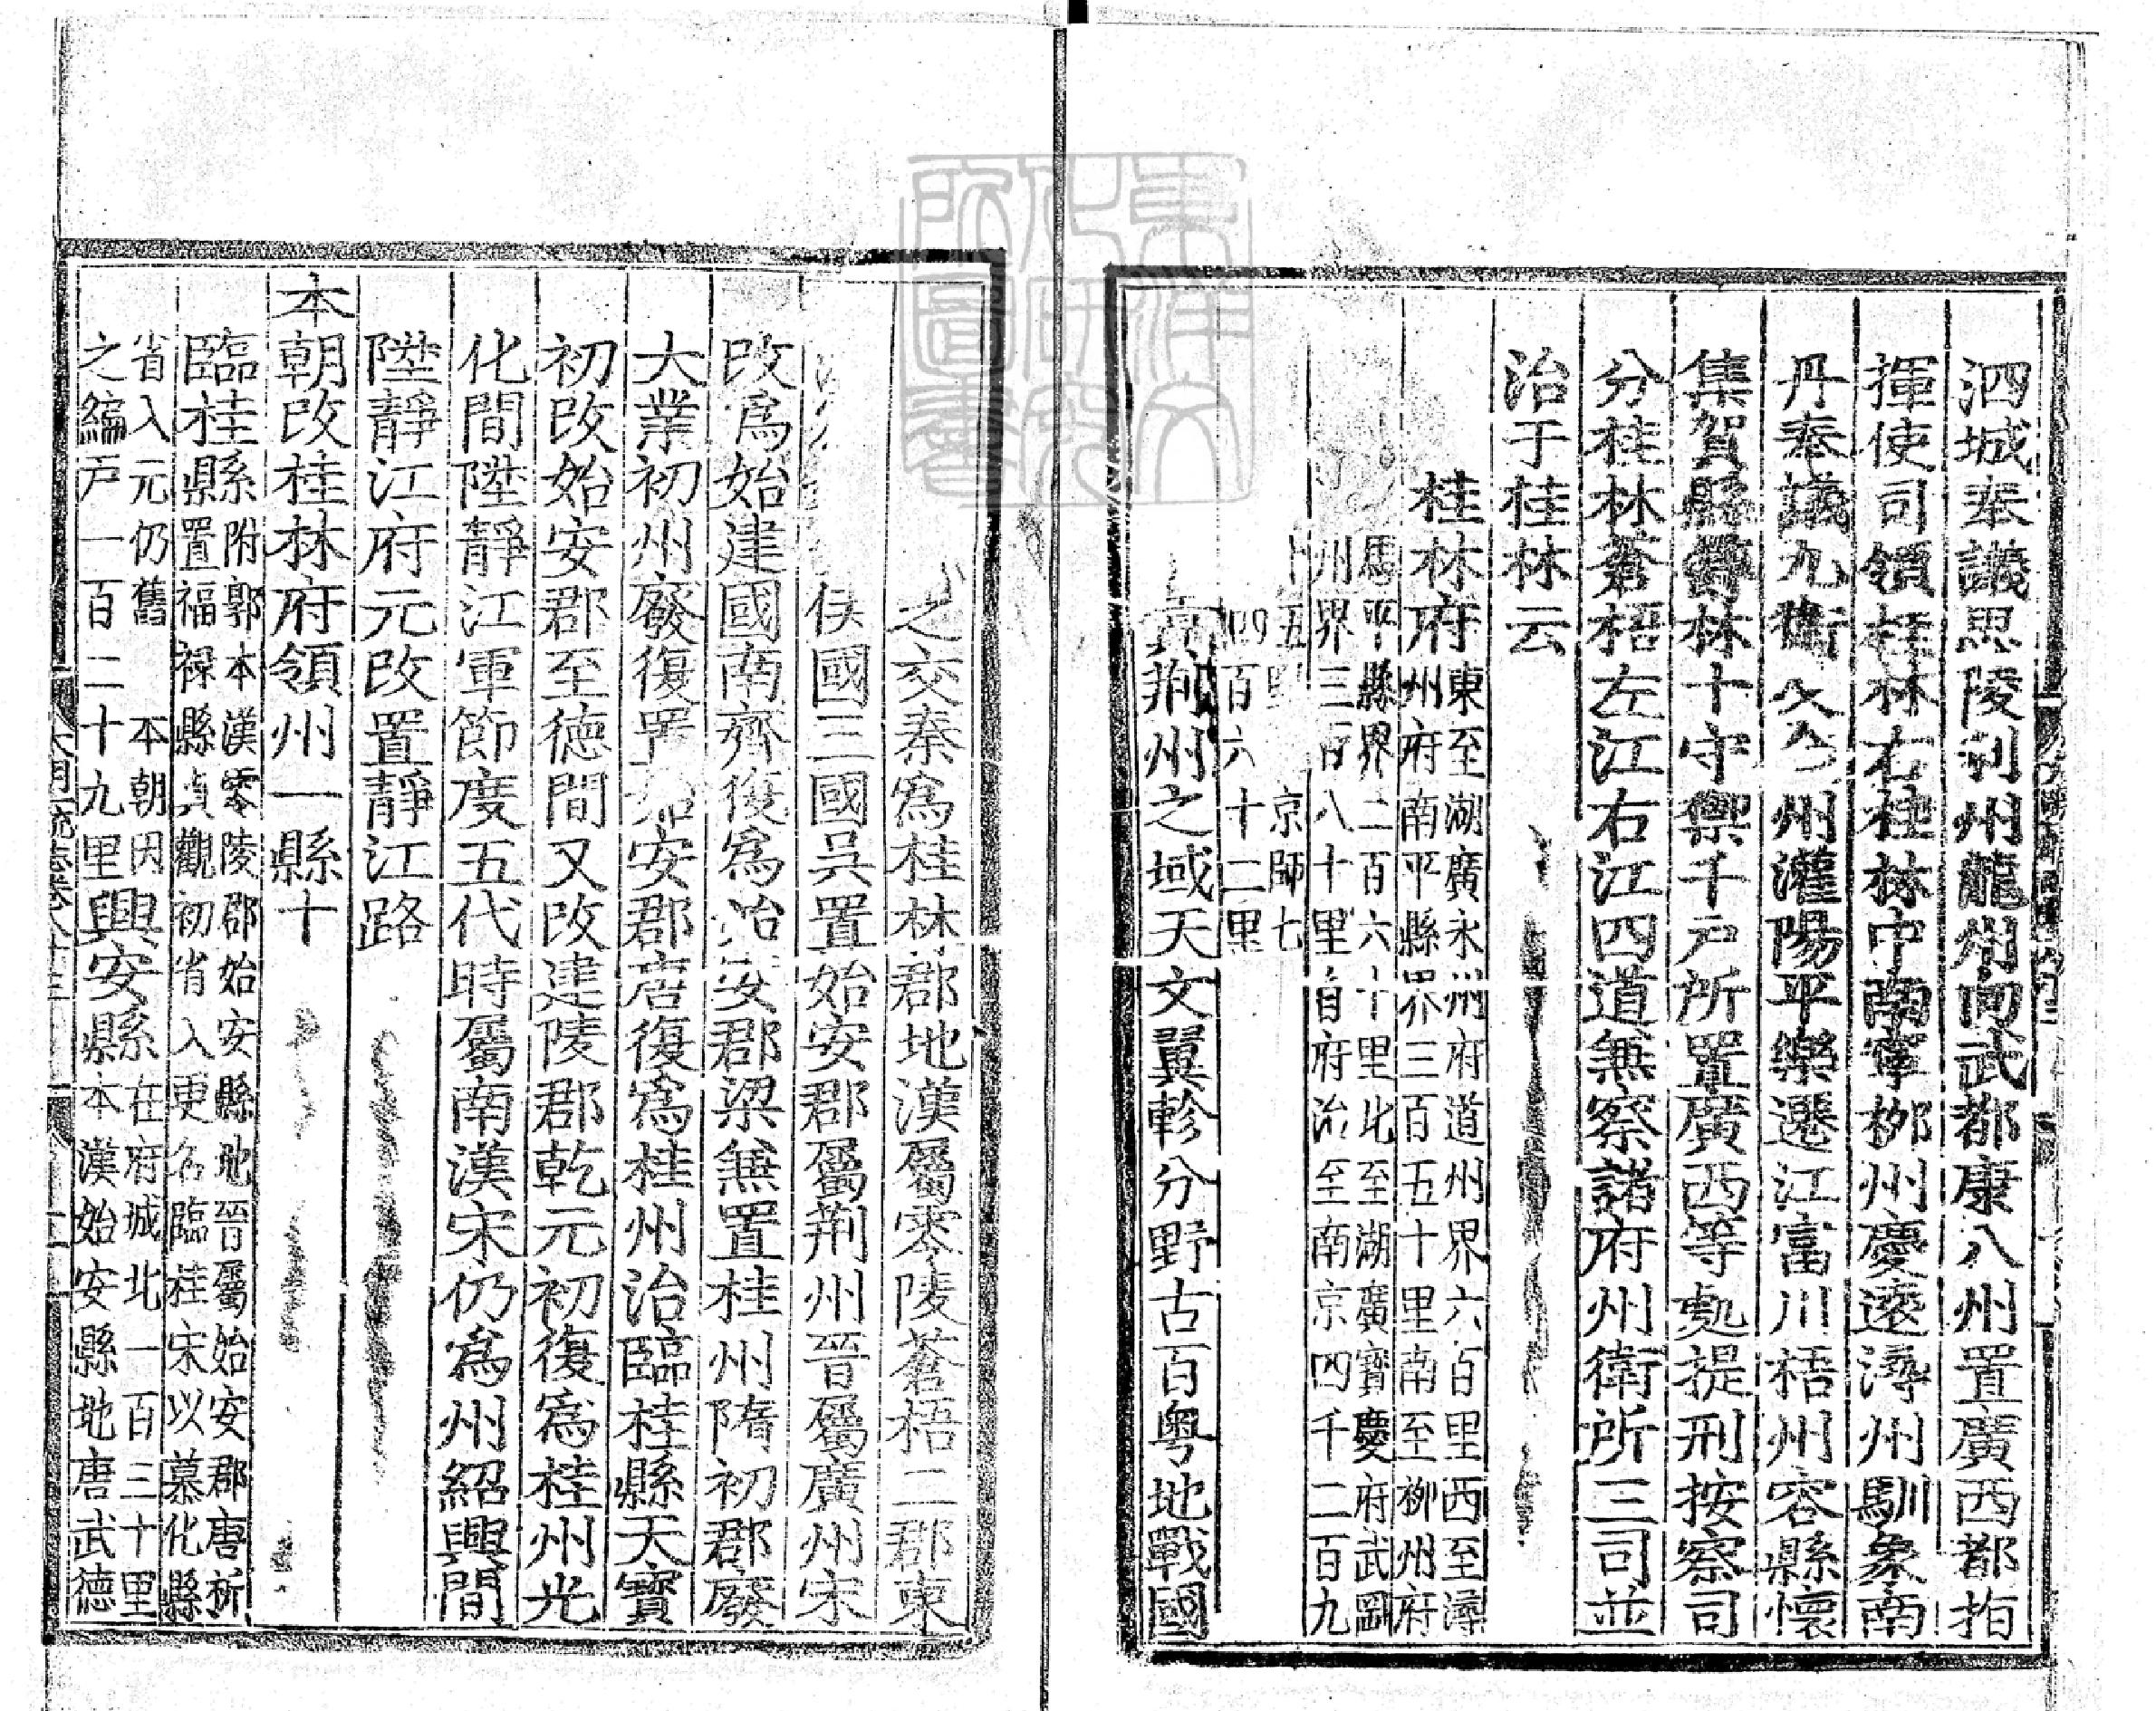 泗城奉議思陵利州龍州向武都康八州置廣西都指
揮使司領桂林右桂林中南寧栁州慶遠潯州馴象南
丹奉議九衛 州灌陽平樂遷江富川梧州容縣懷
集賀縣欝林十守禦千戶所置廣西等處提刑按察司
分桂林蒼梧左江右江四道無察諸府州衛所三司並
治于桂林云
桂林府
東至湖廣永州府道州界六百里西至潯
州府南平縣界三百五十里南至栁州府
平縣界二百六十里北至湖廣寶慶府武岡
州界三百八十里自府治至南京四千二百九
五里 京師七
四百六十二里
荊州之域天文翼軫分野古百粤地戰國
之交秦爲桂林郡地漢屬零陵蒼梧二郡東
侯國三國吳置始安郡屬荆州晉屬廣州宋
改爲始建國南齊復爲始安郡梁無置桂州隋初郡廢
大業初州廢復置始安郡唐復爲桂州治臨桂縣天寶
初改始安郡至德間又改建陵郡乾元初復爲桂州光
化間陞靜江軍節度五代時屬南漢宋仍爲州紹興間
陞靜江府元改置靜江路
本朝改桂林府領州一縣十
臨桂縣
附郭本漢零陵郡始安縣地晉屬始安郡唐析
置福禄縣貞觀初省入更名臨桂宋以慕化縣
省入元仍舊 本朝因
之編戶一百二十九里
興安縣
在府城北一百三十里
本漢始安縣地唐武德
大明一統志卷八十三